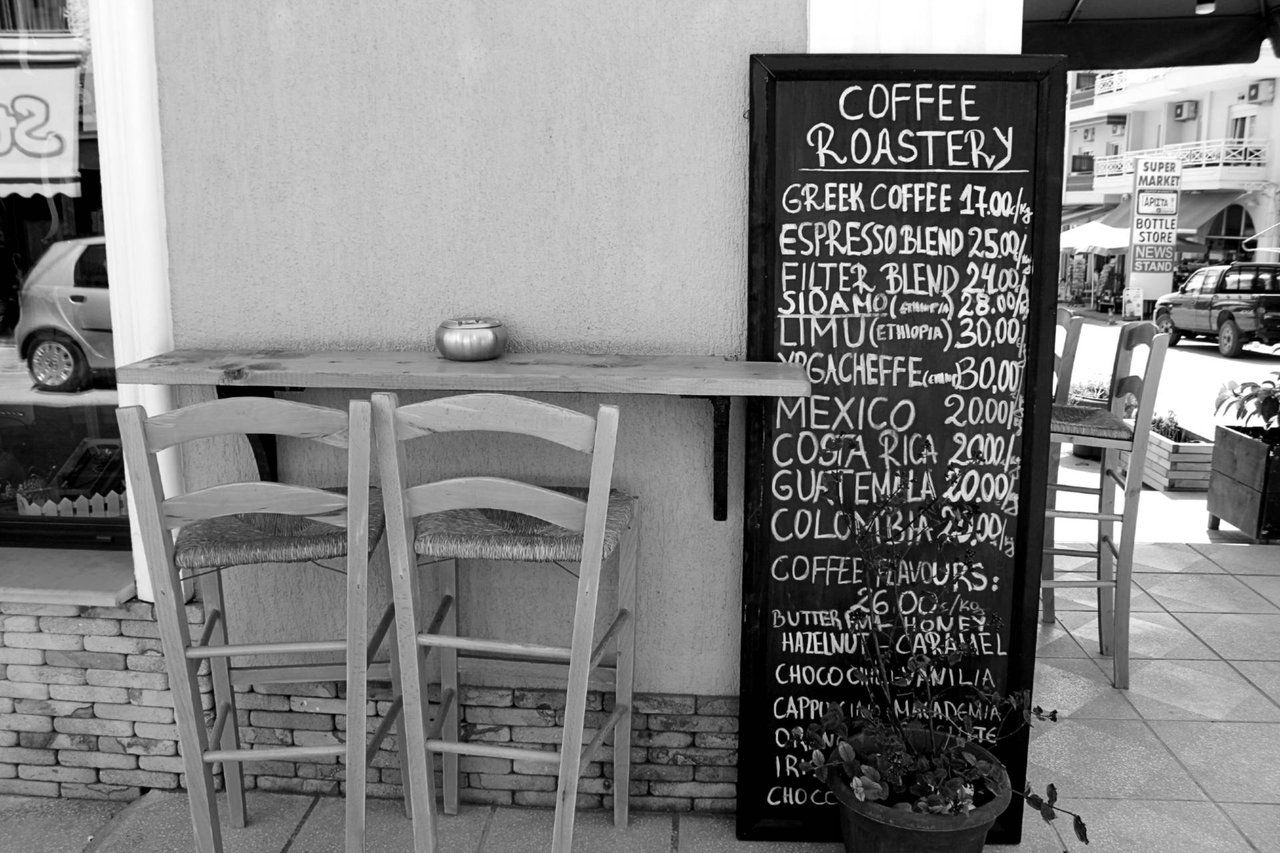 COFFEE
ROASTERY
GREEK COFFEE 17.00€/kg
ESPRESSO BLEND 25.00/kg
FILTER BLEND 24.00/kg
SIDAMO (ETHIOPIA) 28.00/kg
LIMU (ETHIOPIA) 30.00/
YRGACHEFFE 30.00/
MEXICO 20.00/
COSTA RICA 20.00/kg
GUATEMALA 20.00/kg
COLOMBIA 20.00/kg
COFFEE FLAVOURS:
26.00€/kg
HONEY
HAZELNUT - CARAMEL
VANILIA
CAPPUCCINO MACADEMIA
SUPER
MARKET
ΑΡΙΣΤΑ
BOTTLE
STORE
NEWS
STAND